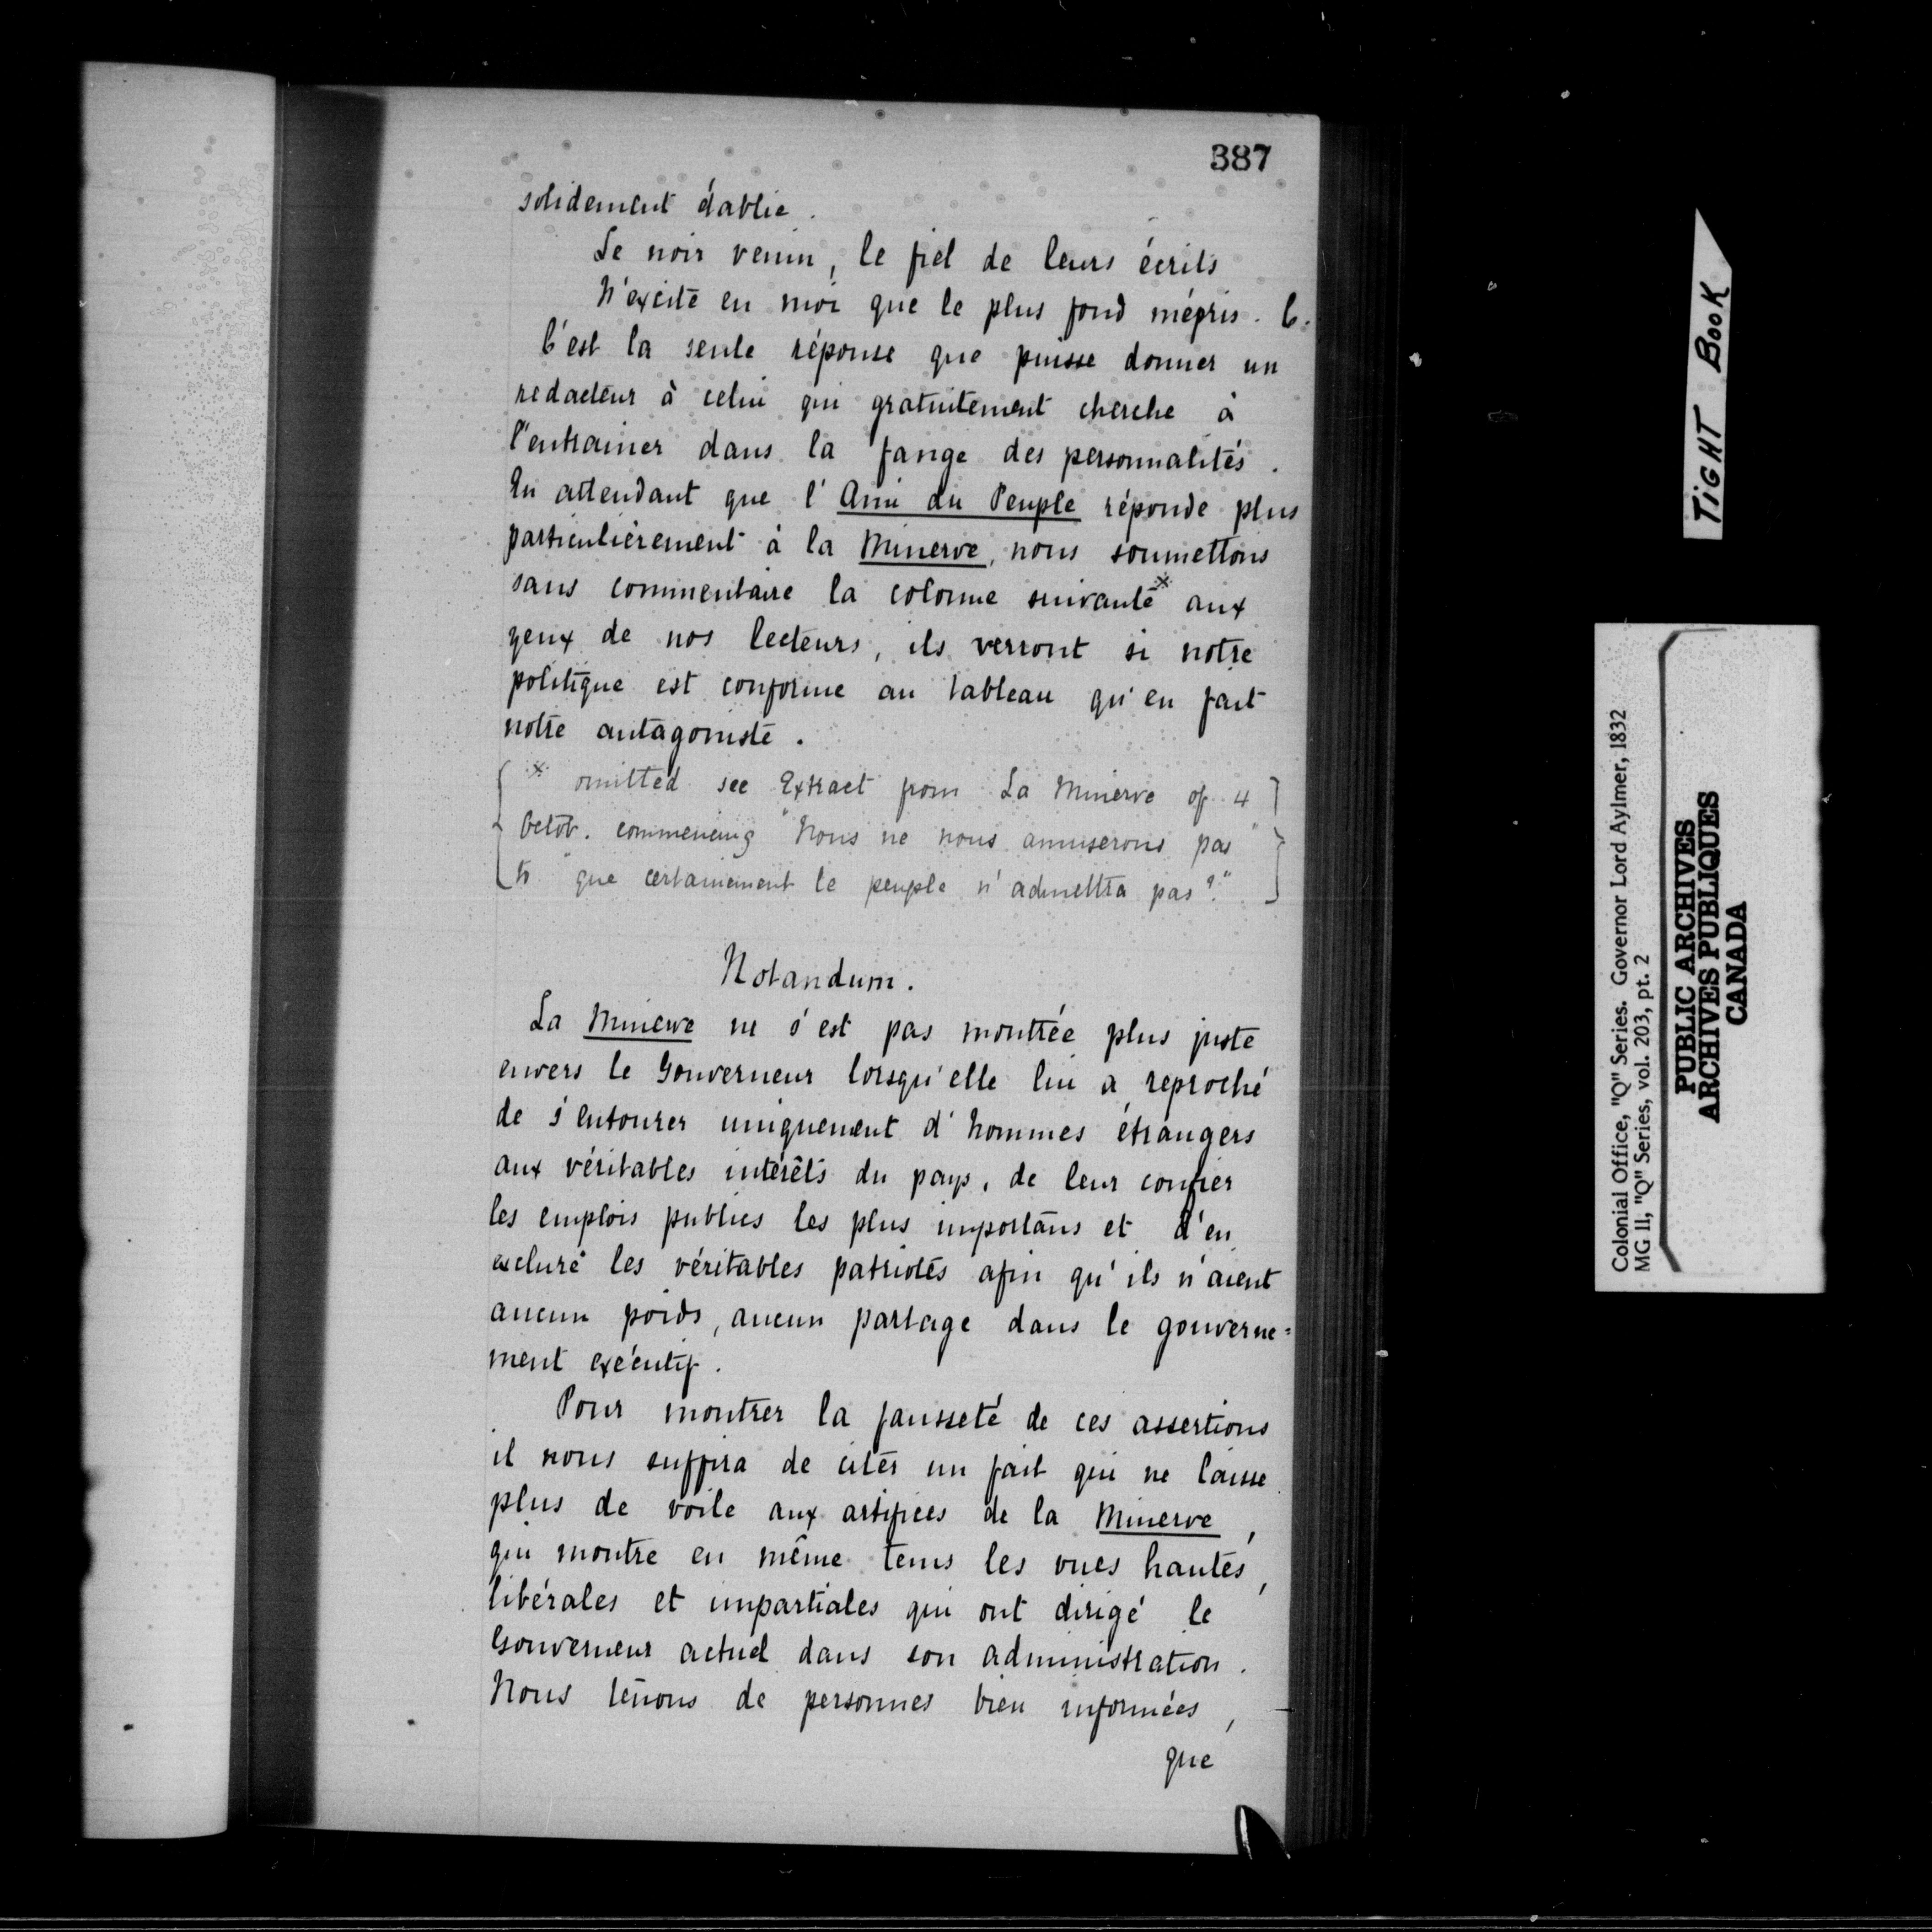 387
solidement établie.
Le noir venin, le fiel de leurs écrits
N'excite en moi que le plus fond mépris. C.
C'est la seule réponse que puisse donner un
redacteur à celui qui gratuitement cherche à
l'entrainer dans la fange des personnalités.
En attendant que l'Ami du Peuple réponde plus
particulièrement à la Minerve, nous soumettons
sans commentaire la colonne suivante* aux
yeux de nos lecteurs, ils verront si notre
politique est conforme au tableau qu'en fait
notre antagoniste.
* omitted see Extract from La Minerve of 4
Octob. commencing "Nous ne nous amuserons pas"
to "que certainement le peuple n'admettra pas?"
Notandum.
La Minerve ne s'est pas montrée plus juste
envers le Gouverneur lorsqu'elle lui a reproché
de s'entourer uniquement d'hommes étrangers
aux véritables intérêts du pays, de leur confier
les emplois publics les plus importans et d'en
exclure les véritables patriotes afin qu'ils n'aient
aucun poids, aucun partage dans le gouverne=
ment exécutif.
Pour montrer la fausseté de ces assertions
il nous suffira de citer un fait qui ne laisse
plus de voile aux artifices de la Minerve,
qui montre en même tems les vues hautes,
libérales et impartiales qui ont dirigé le
Gouverneur actuel dans son administration.
Nous tenons de personnes bien informées,
que
TIGHT BOOK
Colonial Office, "Q" Series. Governor Lord Aylmer, 1832
MG 11, "Q" Series, vol. 203, pt. 2
PUBLIC ARCHIVES
ARCHIVES PUBLIQUES
CANADA